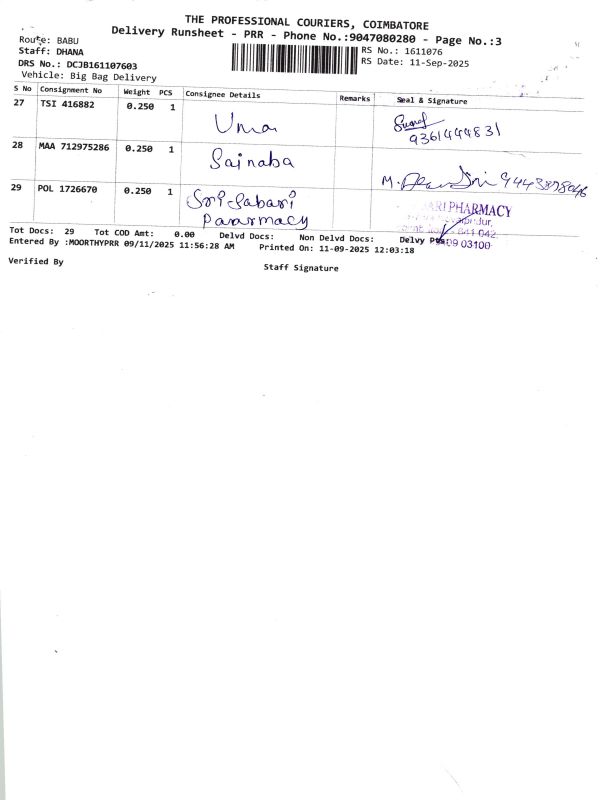 THE PROFESSIONAL COURIERS, COIMBATORE
Delivery Runsheet - PRR - Phone No.:9047080280 - Page No.:3
Route: BABU
Staff: DHANA
DRS No.: DCJB161107603
Vehicle: Big Bag Delivery
RS No.: 1611076
RS Date: 11-Sep-2025
S No Consignment No Weight PCS Consignee Details Remarks Seal & Signature
27 TSI 416882 0.250 1 Uma 9361444831
28 MAA 712975286 0.250 1 Sainaba M.
29 POL 1726670 0.250 1 Sri Sabari
Pararmacy
PHARMACY
641 042
03100
Tot Docs: 29 Tot COD Amt: 0.00 Delvd Docs: Non Delvd Docs: Delvy
Entered By :MOORTHYPRR 09/11/2025 11:56:28 AM Printed On: 11-09-2025 12:03:18
Verified By
Staff Signature